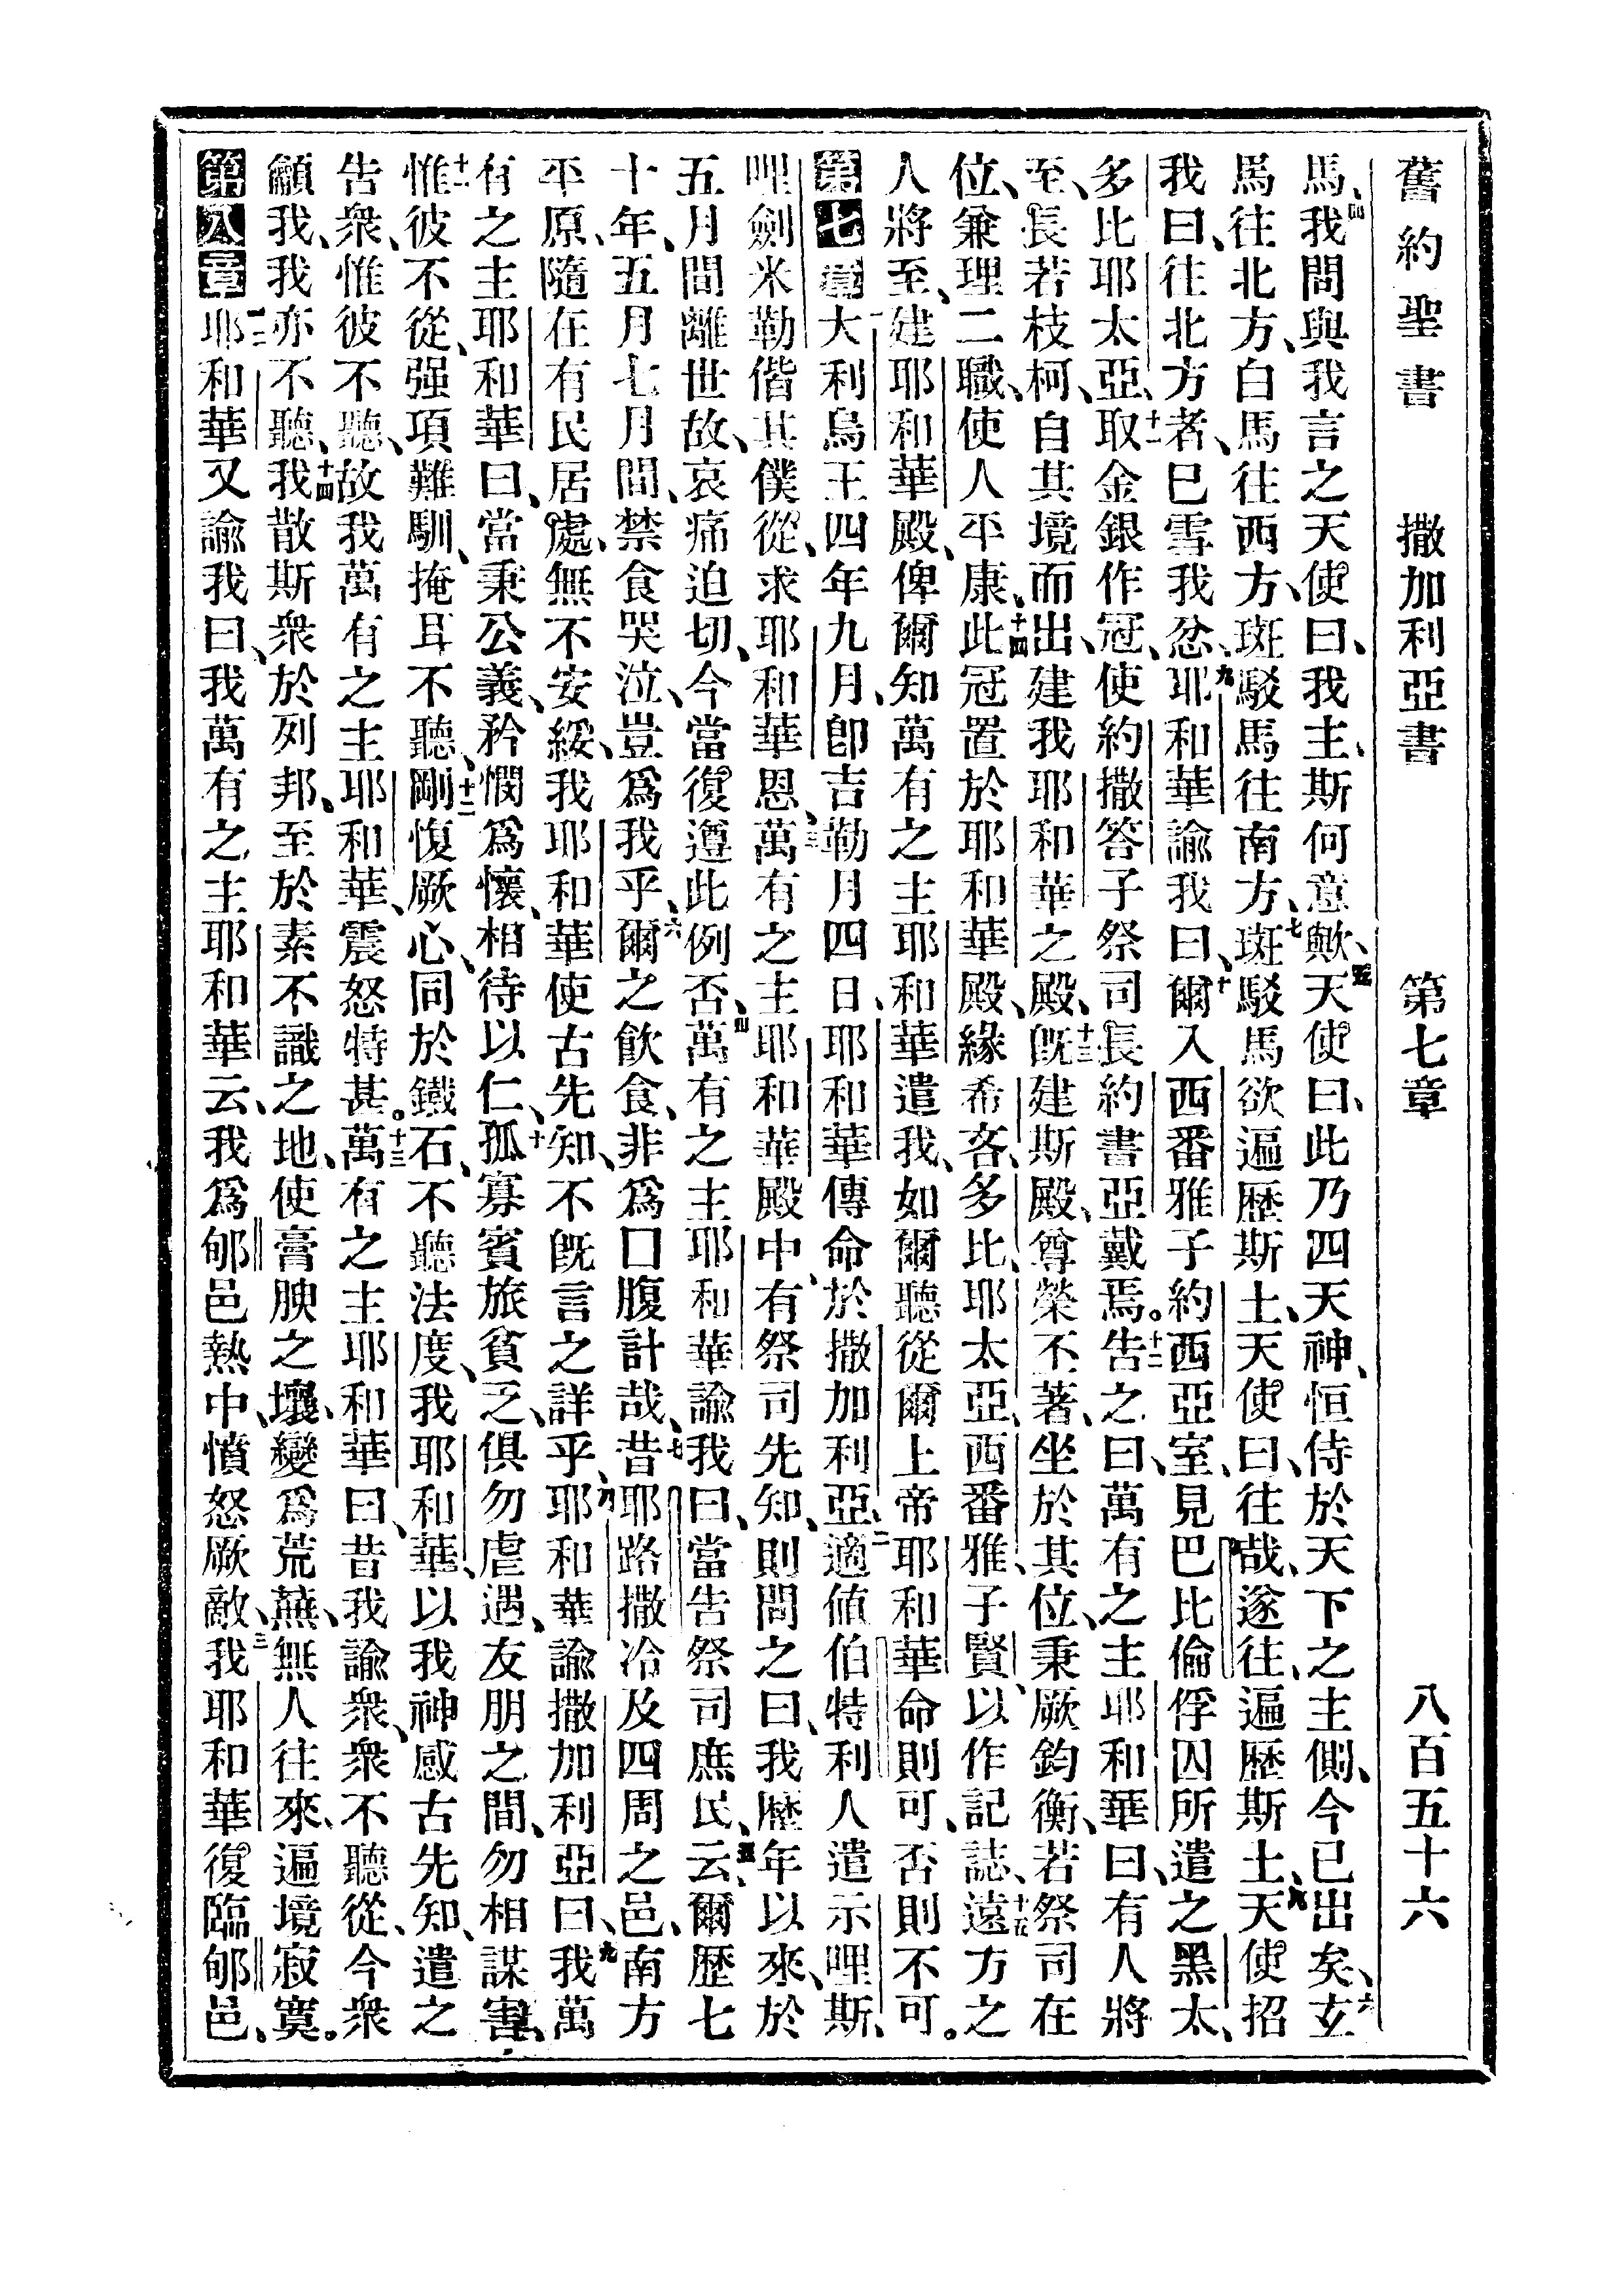 舊約聖書 撒加利亞書 第七章 八百五十六
馬、四我問與我言之天使曰、我主、斯何意歟、五天使曰、此乃四天神、恒侍於天下之主側、今已出矣、六玄
馬往北方、白馬往西方、斑駁馬往南方、七斑駁馬欲遍歷斯土、天使曰、往哉、遂往、遍歷斯土、八天使招
我曰、往北方者、已雪我忿、九耶和華諭我曰、十爾入西番雅子約西亞室、見巴比倫俘囚所遣之黑太、
多比耶太亞、十一取金銀作冠、使約撒答子祭司長約書亞戴焉。十二告之曰、萬有之主耶和華曰、有人將
至、長若枝柯、自其境而出、建我耶和華之殿、十三旣建斯殿、尊榮丕著、坐於其位、秉厥鈞衡、若祭司在
位、兼理二職、使人平康、十四此冠置於耶和華殿、緣希吝、多比、耶太亞、西番雅、子賢、以作記誌、十五遠方之
人將至、建耶和華殿、俾爾知萬有之主耶和華遣我、如爾聽從爾上帝耶和華命則可、否則不可。
第七章一大利烏王四年九月、卽吉勒月四日、耶和華傳命於撒加利亞、二適値伯特利人遣示哩斯、
哩劍米勒偕其僕從、求耶和華恩、三萬有之主耶和華殿中、有祭司先知、則問之曰、我歷年以來、於
五月間離世故、哀痛迫切、今當復遵此例否、四萬有之主耶和華諭我曰、當告祭司庶民云、五爾歷七
十年、五月七月間、禁食哭泣、豈爲我乎、六爾之飮食、非爲口腹計哉、七昔耶路撒冷及四周之邑、南方
平原、隨在有民居處、無不安綏、我耶和華使古先知、不旣言之詳乎、八耶和華諭撒加利亞曰、九我萬
有之主耶和華曰、當秉公義、矜憫爲懷、相待以仁、十孤寡賓旅貧乏、俱勿虐遇、友朋之間、勿相謀害、
十一惟彼不從、强項難馴、掩耳不聽、十二剛愎厥心、同於鐵石、不聽法度、我耶和華、以我神感古先知、遣之
告衆、惟彼不聽、故我萬有之主耶和華、震怒特甚。十三萬有之主耶和華曰、昔我諭衆、衆不聽從、今衆
籲我、我亦不聽、十四我散斯衆於列邦、至於素不識之地、使膏腴之壤、變爲荒蕪、無人往來、遍境寂寞。
第八章一二耶和華又諭我曰、我萬有之主耶和華云、我爲郇邑熱中、憤怒厥敵、三我耶和華復臨郇邑、